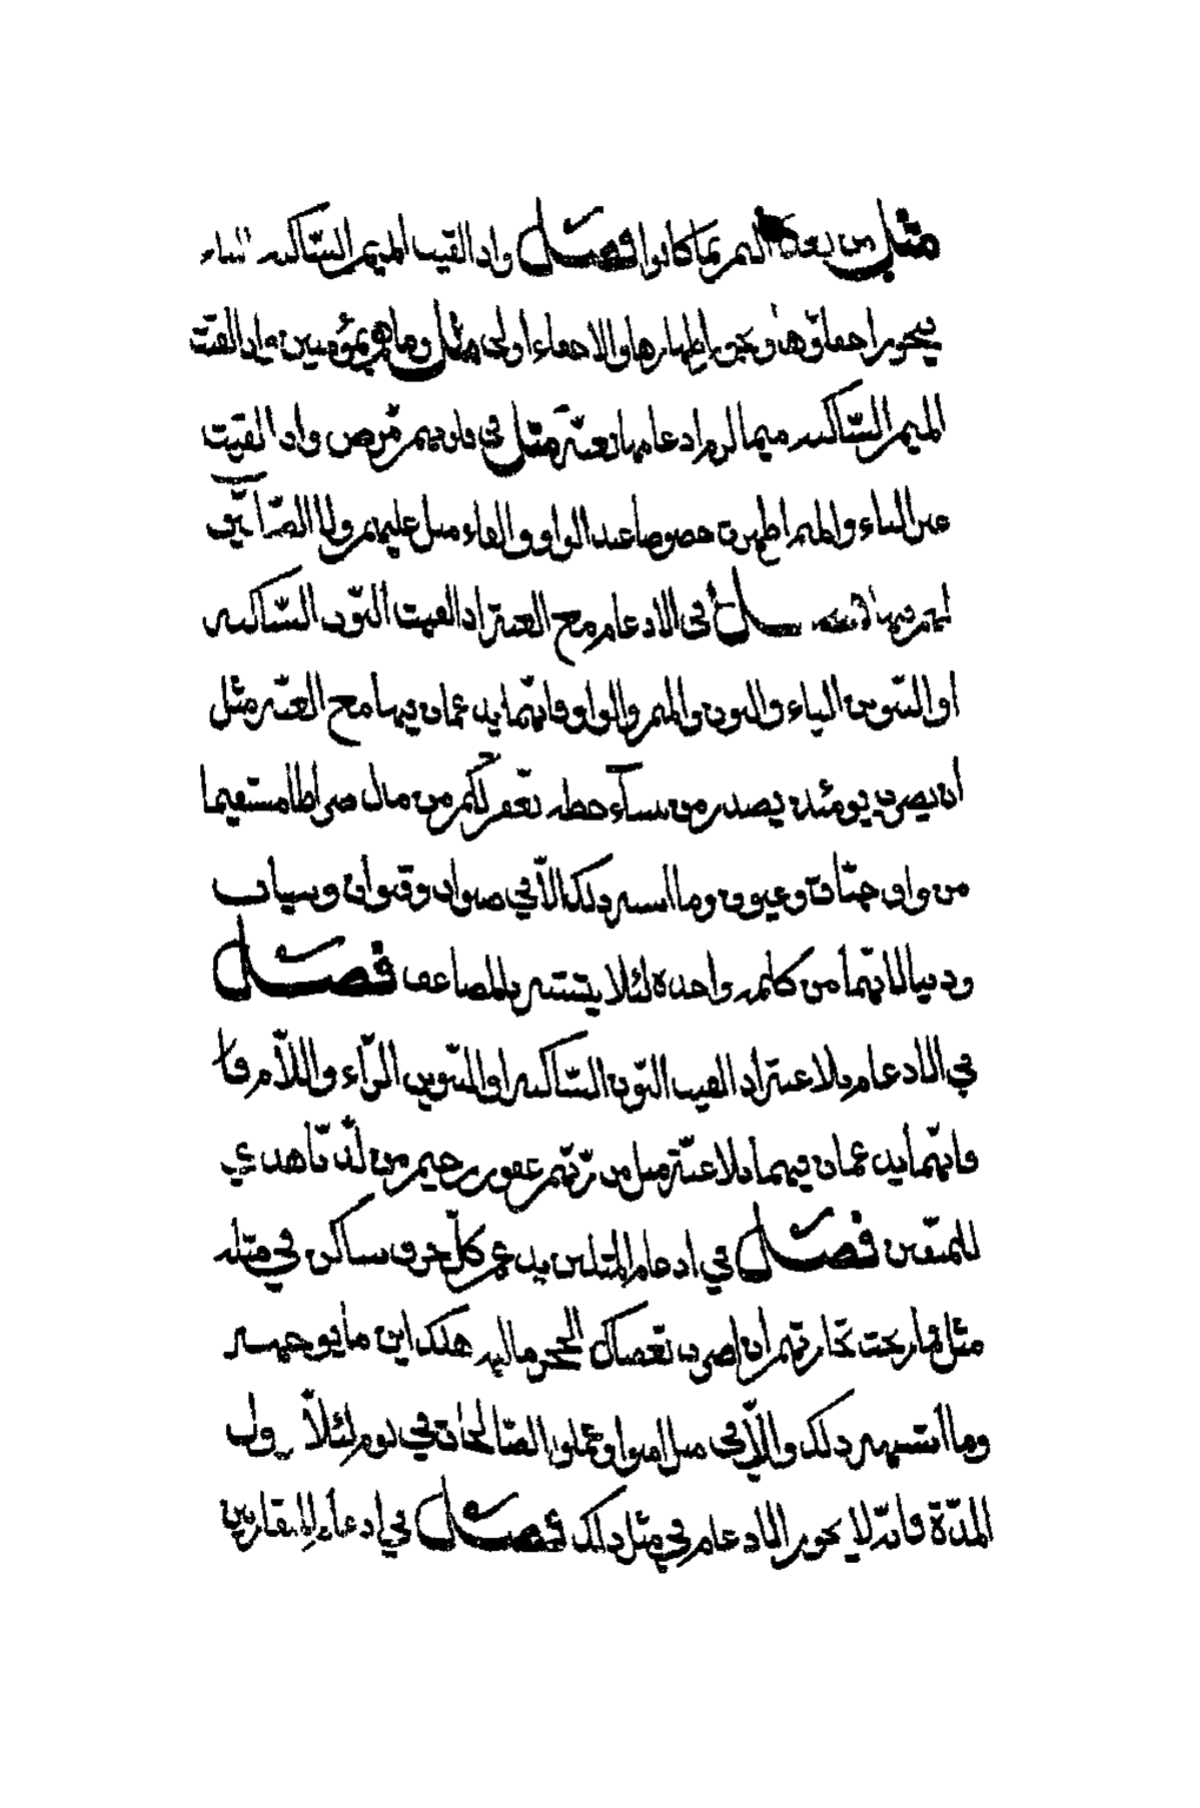 مثل من بعد اليم بما كانوا فصل واذا لقيت الميم الساكنة الباء
يجوز اخفاؤها ويجوز اظهارها والاخفاء اولى مثل وما هم بمؤمنين واذا لقيت
الميم الساكنة ميما لزم ادغامها بغنة مثل في قلوبهم مرض واذا لقيت
غير الباء والميم اظهرت خصوصا عند الواو والفاء مثل عليهم ولا الضالين
هم فيها فصل في الادغام مع الغنة اذا لقيت النون الساكنة
او التنوين الياء والنون والميم والواو فانهما يدغمان فيها مع الغنة مثل
ان يضرب يومئذ يصدر من نساء حطة نغفر لكم من مال صراطا مستقيما
من وال جنات وعيون وما اشبه ذلك الا في صنوان وقنوان وبنيان
ودنيا لانهما من كلمة واحدة لئلا يشتبه بالمضاعف فصل
في الادغام بلا غنة اذا لقيت النون الساكنة او التنوين الراء واللام
فانهما يدغمان فيهما بلا غنة مثل من ربهم غفور رحيم من لدنا هدى
للمتقين فصل في ادغام المثلين يدغم كل حرف ساكن في مثله
مثل فما ربحت تجارتهم ان اضرب بعصاك الحجر ماليه هلك اين ما يوجهه
وما اشبه ذلك والا في مثل امنوا وعملوا الصالحات في يوم لئلا يزول
المدة فانه لا يجوز الادغام في مثل ذلك فصل في ادغام المتقاربين